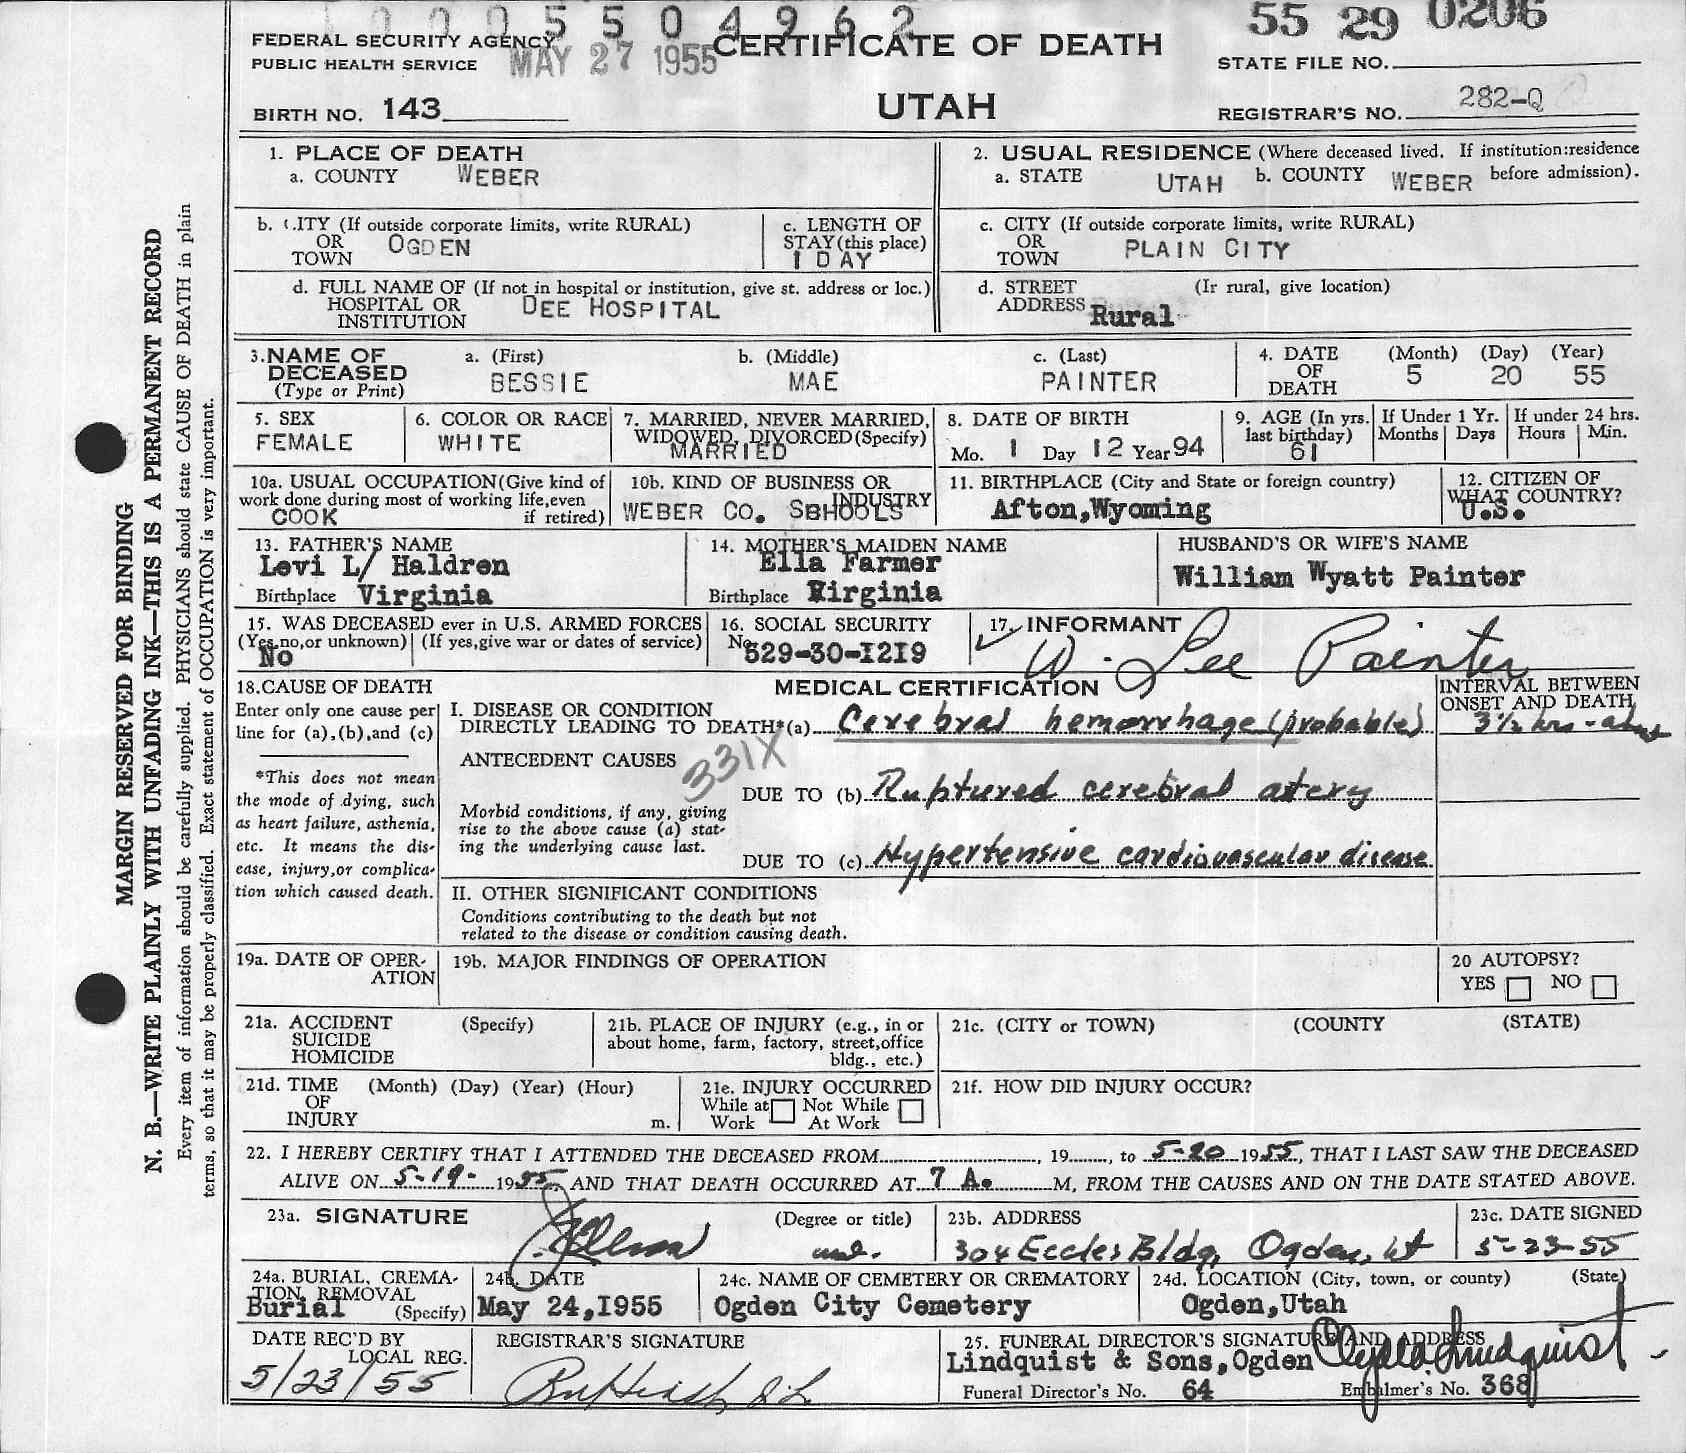 0005504962
55 29 0206
FEDERAL SECURITY AGENCY
PUBLIC HEALTH SERVICE
MAY 27 1955
CERTIFICATE OF DEATH
STATE FILE NO.
BIRTH NO. 143
UTAH
REGISTRAR'S NO. 282-Q
1. PLACE OF DEATH
a. COUNTY WEBER
2. USUAL RESIDENCE (Where deceased lived. If institution:residence before admission).
a. STATE UTAH b. COUNTY WEBER
b. CITY (If outside corporate limits, write RURAL)
OR TOWN OGDEN
c. LENGTH OF STAY (this place)
1 DAY
c. CITY (If outside corporate limits, write RURAL)
OR TOWN PLAIN CITY
d. FULL NAME OF (If not in hospital or institution, give st. address or loc.)
HOSPITAL OR INSTITUTION DEE HOSPITAL
d. STREET ADDRESS (Ir rural, give location)
Rural
3. NAME OF DECEASED (Type or Print)
a. (First) BESSIE
b. (Middle) MAE
c. (Last) PAINTER
4. DATE OF DEATH (Month) (Day) (Year)
5 20 55
5. SEX
FEMALE
6. COLOR OR RACE
WHITE
7. MARRIED, NEVER MARRIED, WIDOWED, DIVORCED (Specify)
MARRIED
8. DATE OF BIRTH
Mo. 1 Day 12 Year 94
9. AGE (In yrs. last birthday)
61
If Under 1 Yr. Months Days
If under 24 hrs. Hours Min.
10a. USUAL OCCUPATION (Give kind of work done during most of working life, even if retired)
COOK
10b. KIND OF BUSINESS OR INDUSTRY
WEBER CO. SBHOOLS
11. BIRTHPLACE (City and State or foreign country)
Afton,Wyoming
12. CITIZEN OF WHAT COUNTRY?
U.S.
13. FATHER'S NAME
Levi L/ Haldren
Birthplace Virginia
14. MOTHER'S MAIDEN NAME
Ella Farmer
Birthplace Virginia
HUSBAND'S OR WIFE'S NAME
William Wyatt Painter
15. WAS DECEASED ever in U.S. ARMED FORCES
(Yes,no,or unknown) (If yes,give war or dates of service)
No
16. SOCIAL SECURITY
No. 529-30-1219
17. INFORMANT
W. Lee Painter
18. CAUSE OF DEATH
Enter only one cause per line for (a),(b),and (c)
*This does not mean the mode of dying, such as heart failure, asthenia, etc. It means the disease, injury,or complication which caused death.
MEDICAL CERTIFICATION
INTERVAL BETWEEN ONSET AND DEATH
I. DISEASE OR CONDITION DIRECTLY LEADING TO DEATH*(a) Cerebral hemorrhage (probable)
3½ hrs -
ANTECEDENT CAUSES
331X
Morbid conditions, if any, giving rise to the above cause (a) stating the underlying cause last.
DUE TO (b) Ruptured cerebral artery
DUE TO (c) Hypertensive cardiovascular disease
II. OTHER SIGNIFICANT CONDITIONS
Conditions contributing to the death but not related to the disease or condition causing death.
19a. DATE OF OPERATION
19b. MAJOR FINDINGS OF OPERATION
20 AUTOPSY?
YES NO
21a. ACCIDENT SUICIDE HOMICIDE (Specify)
21b. PLACE OF INJURY (e.g., in or about home, farm, factory, street,office bldg., etc.)
21c. (CITY or TOWN) (COUNTY (STATE)
21d. TIME OF INJURY (Month) (Day) (Year) (Hour)
m.
21e. INJURY OCCURRED
While at Work Not While At Work
21f. HOW DID INJURY OCCUR?
22. I HEREBY CERTIFY THAT I ATTENDED THE DECEASED FROM , 19 , to 5-20 1955, THAT I LAST SAW THE DECEASED
ALIVE ON 5-19- 1955, AND THAT DEATH OCCURRED AT 7 A. M, FROM THE CAUSES AND ON THE DATE STATED ABOVE.
23a. SIGNATURE (Degree or title)
23b. ADDRESS
304 Eccles Bldg, Ogden, Ut
23c. DATE SIGNED
5-23-55
24a. BURIAL, CREMATION, REMOVAL (Specify)
Burial
24b. DATE
May 24,1955
24c. NAME OF CEMETERY OR CREMATORY
Ogden City Cemetery
24d. LOCATION (City, town, or county) (State)
Ogden,Utah
DATE REC'D BY LOCAL REG.
5/23/55
REGISTRAR'S SIGNATURE
25. FUNERAL DIRECTOR'S SIGNATURE AND ADDRESS
Lindquist & Sons,Ogden
Lindquist
Funeral Director's No. 64
Embalmer's No. 368
MARGIN RESERVED FOR BINDING
N. B.—WRITE PLAINLY WITH UNFADING INK—THIS IS A PERMANENT RECORD
Every item of information should be carefully supplied. PHYSICIANS should state CAUSE OF DEATH in plain
terms, so that it may be properly classified. Exact statement of OCCUPATION is very important.